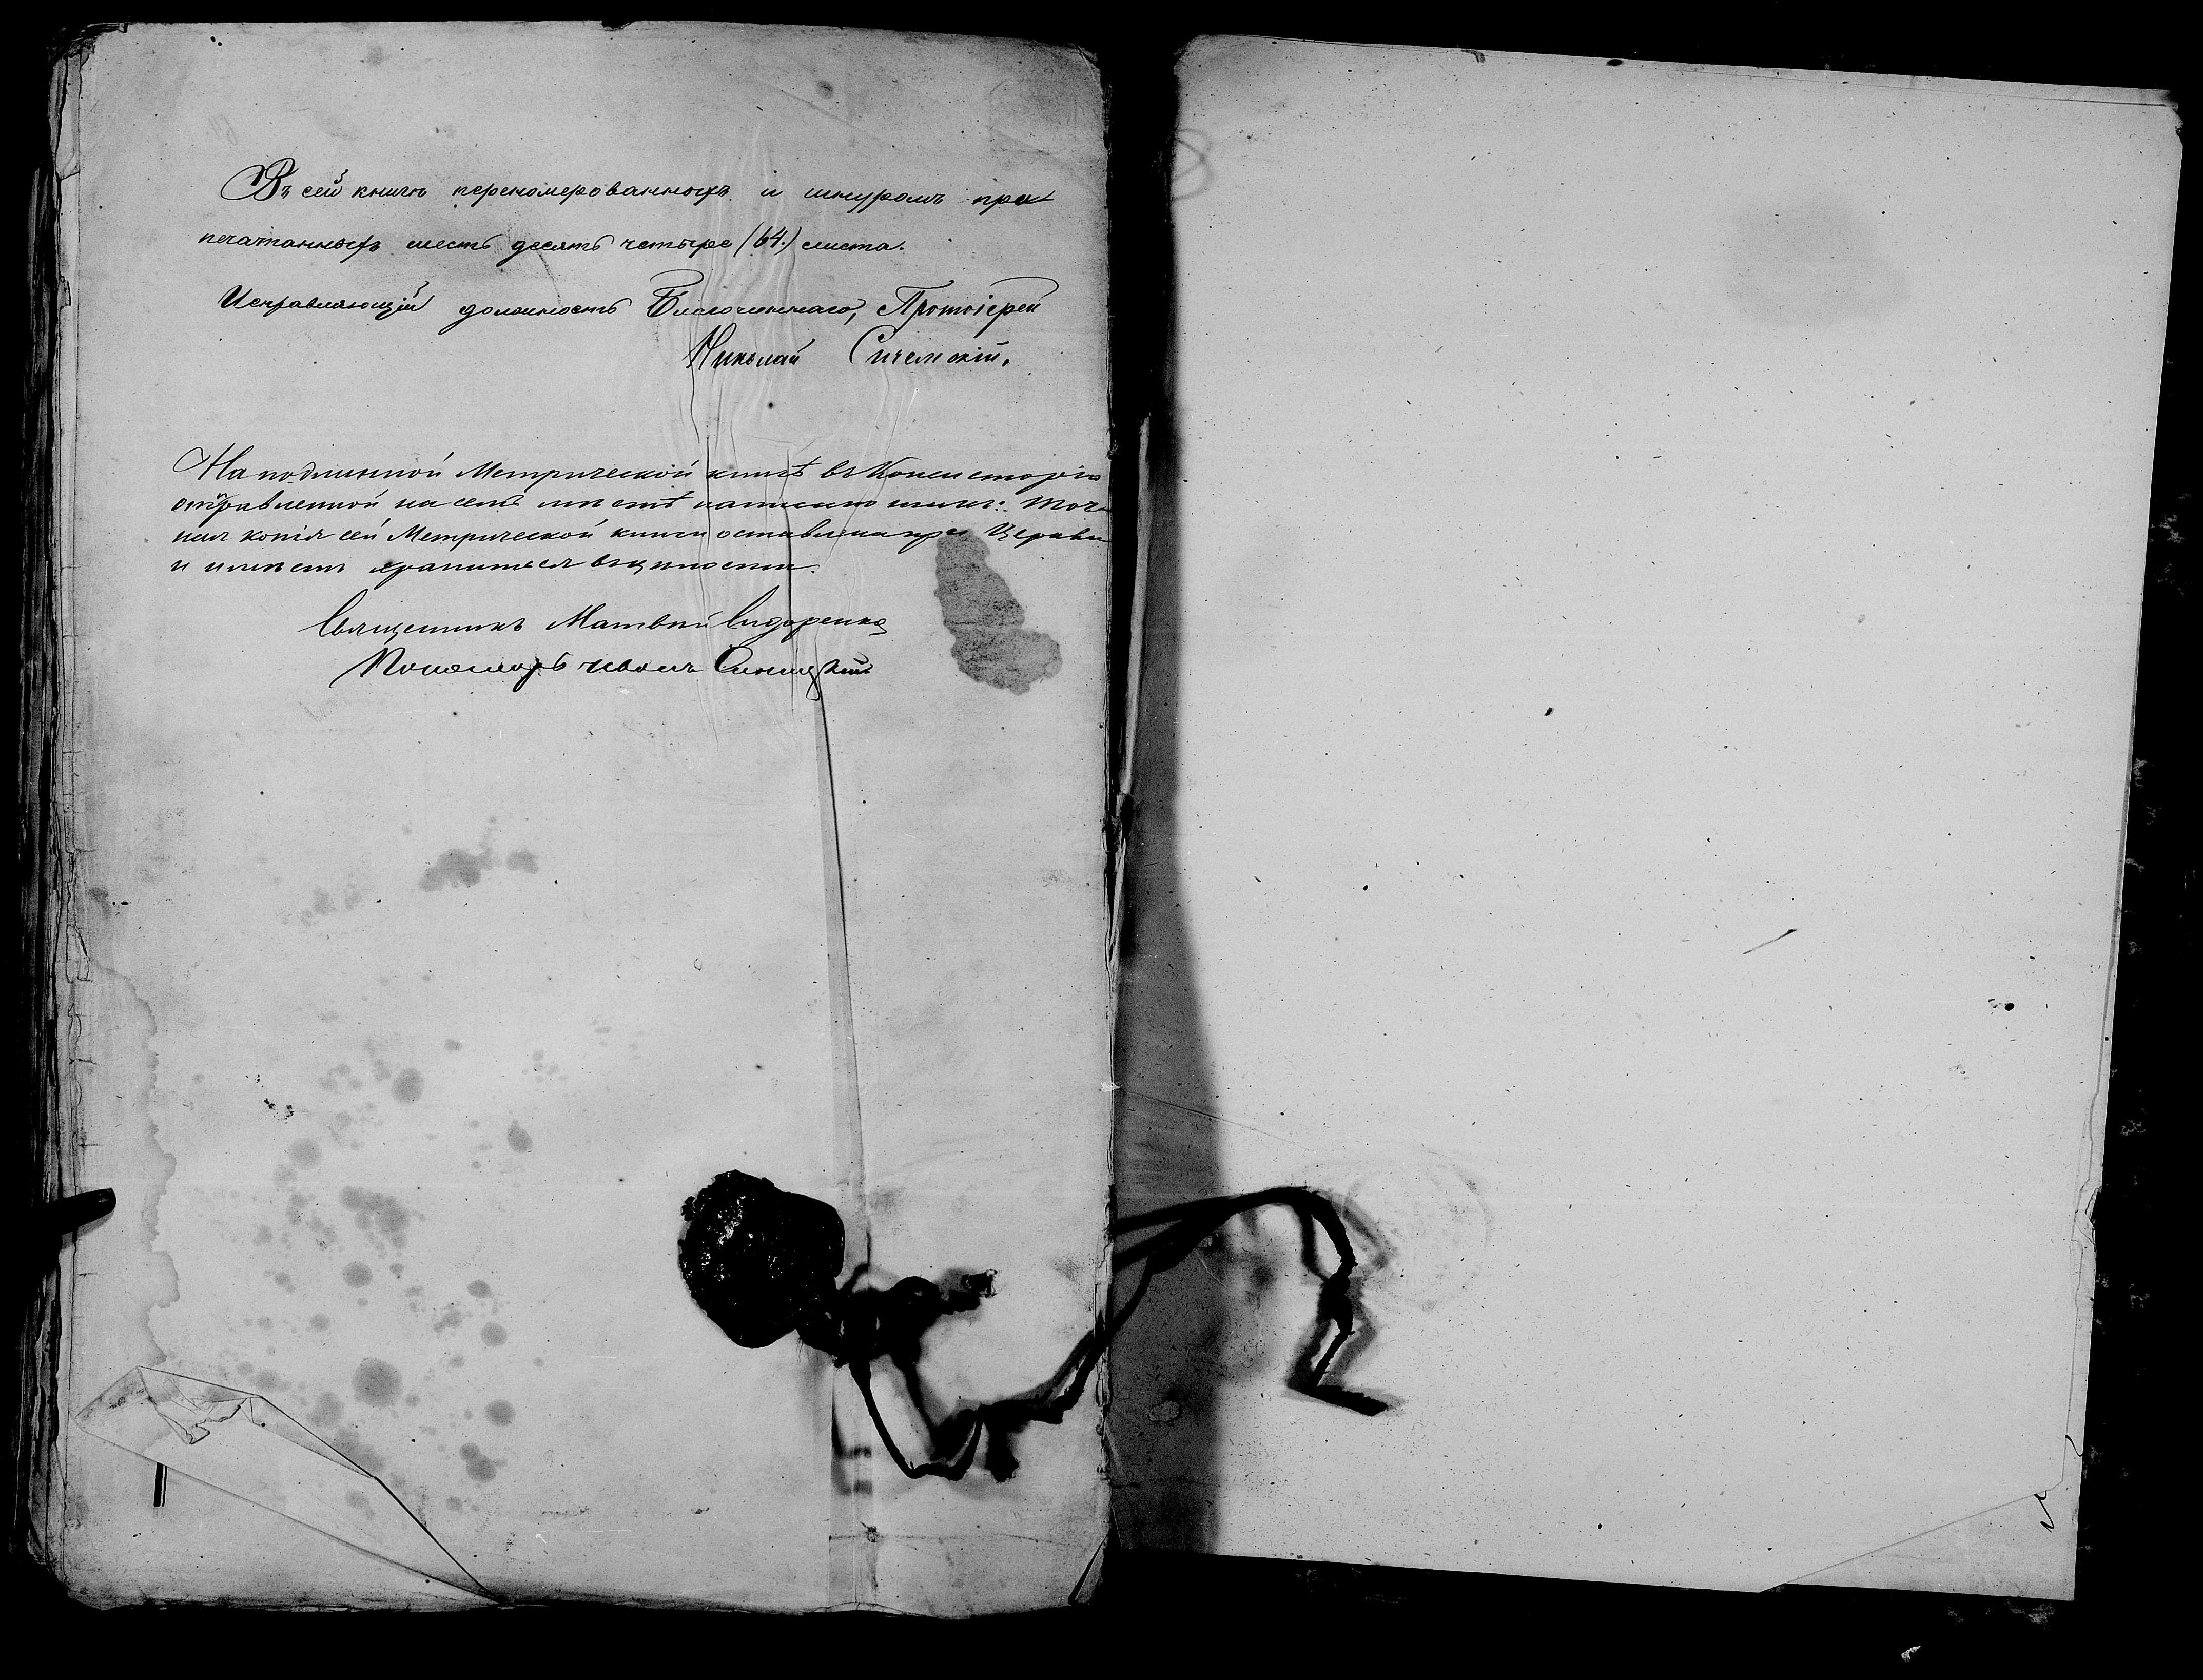 Въ сей книгѣ перемомерованныхъ и шнуромъ при
печатанныхъ шесть десять четыре (64.) листа.
Исправляющій должность Благочиннаго, Протоіерей
Николай Сичемскій.
На подлинной Метрической книгѣ въ Консисторію
отправленной на семъ мѣстѣ написано тако: Точ-
ная копія сей Метрической книги оставлена при Церкви
и имѣетъ хранится въ цѣлости.
Священникъ Матвѣй Сидоренко
Пономарь Синицкій